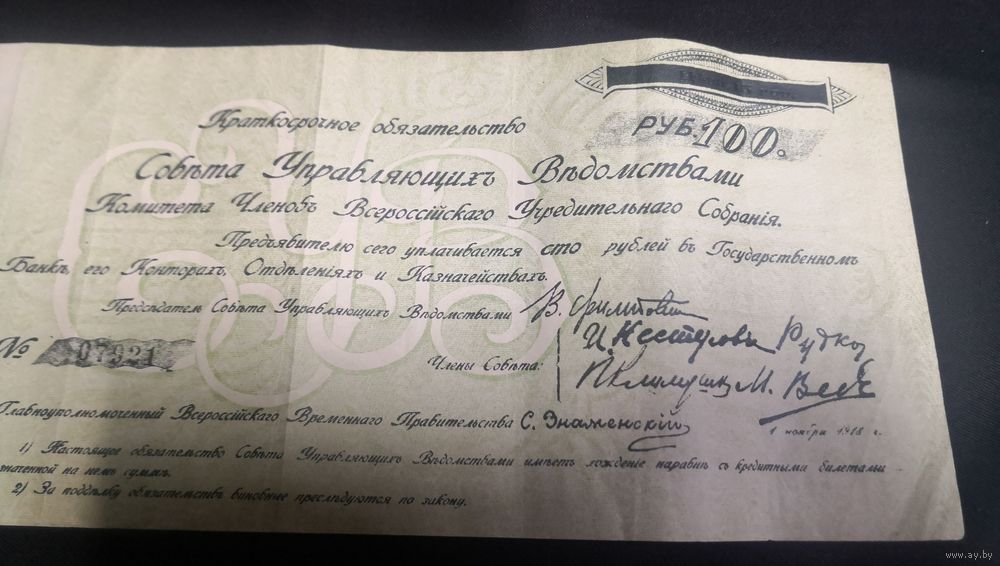 РУБ. 100.
Краткосрочное обязательство
Совѣта Управляющихъ Вѣдомствами
Комитета Членовъ Всероссійскаго Учредительнаго Собранія.
Предъявителю сего уплачивается сто рублей въ Государственномъ
Банкѣ, его Конторахъ, Отдѣленіяхъ и Казначействахъ.
Предсѣдатель Совѣта Управляющихъ Вѣдомствами В.
И. Нестеровъ Рудко
№ 07921
Члены Совѣта:
П. Климушкинъ М. Веденяпинъ
Главноуполномоченный Всероссійскаго Временнаго Правительства С. Знаменскій
1 ноября 1918 г.
1) Настоящее обязательство Совѣта Управляющихъ Вѣдомствами имѣетъ хожденіе наравнѣ съ кредитными билетами
значенной на немъ суммѣ.
2) За поддѣлку обязательствъ виновные преслѣдуются по закону.
www.ay.by